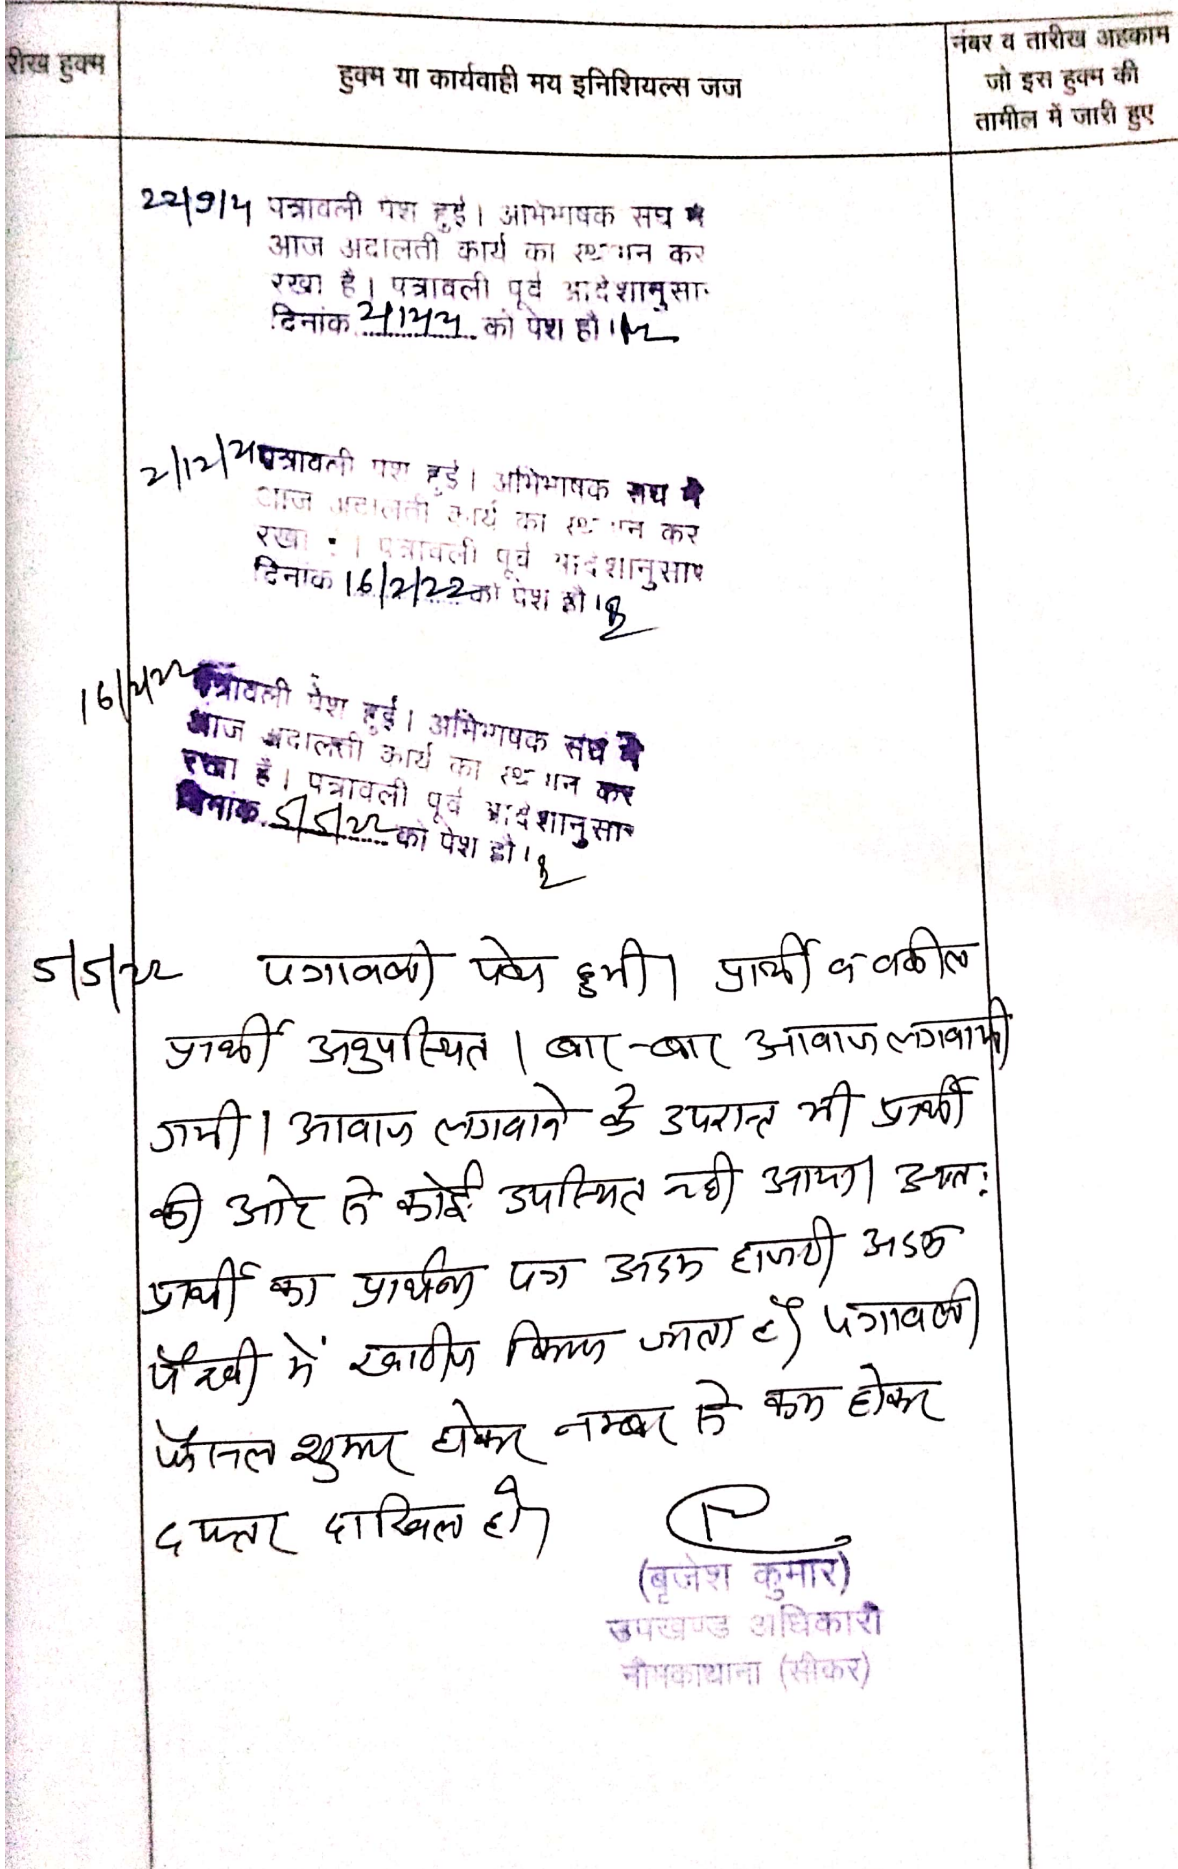 रीख हुक्म
हुक्म या कार्यवाही मय इनिशियल्स जज
नंबर व तारीख अहकाम
जो इस हुक्म की
तामील में जारी हुए
22/9/21 पत्रावली पेश हुई। अभिभाषक संघ ने
आज अदालती कार्य का स्थगन कर
रखा है। पत्रावली पूर्व आदेशानुसार
दिनांक को पेश हो।
2/12/21 पत्रावली पेश हुई। अभिभाषक संघ ने
आज अदालती कार्य का स्थगन कर
रखा है। पत्रावली पूर्व आदेशानुसार
दिनांक 16/2/22 को पेश हो।
16/2/22 पत्रावली पेश हुई। अभिभाषक संघ ने
आज अदालती कार्य का स्थगन कर
रखा है। पत्रावली पूर्व आदेशानुसार
दिनांक 5/5/22 को पेश हो।
5/5/22 पत्रावली पेश हुयी। प्रार्थी व वकील
प्रार्थी अनुपस्थित। बार-बार आवाज लगवायी
गयी। आवाज लगवाने के उपरान्त भी प्रार्थी
की ओर से कोई उपस्थित नही आया। अतः
प्रार्थी का प्रार्थना पत्र अदम हाजरी अदम
पैरवी में खारीज किया जाता है। पत्रावली
फैसल शुमार होकर नम्बर से कम होकर
दफ्तर दाखिल हो।
(बृजेश कुमार)
उपखण्ड अधिकारी
नीमकाथाना (सीकर)